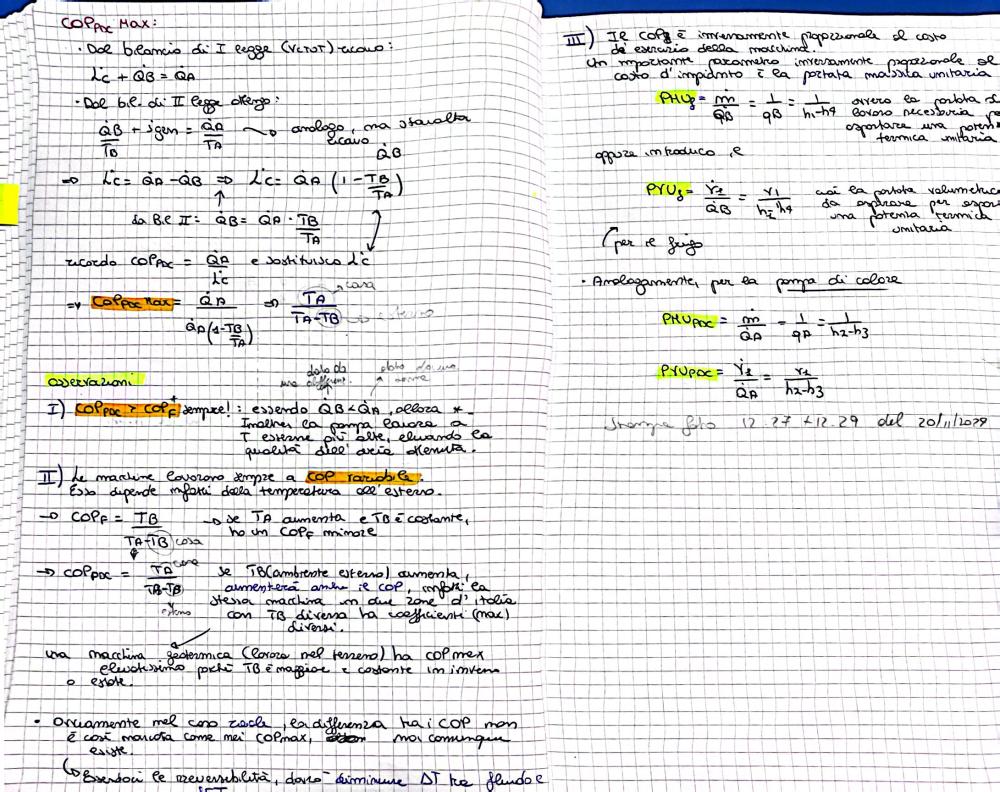 COP PDC Max:
• Dal bilancio di I legge (vcton) ricavo:
L̇c + Q̇B = Q̇A
• Dal bil. di II legge ottengo:
Q̇B/TB + ṡgen = Q̇A/TA → analogo, ma stavolta
ricavo Q̇B
⇒ L̇c = Q̇A - Q̇B ⇒ L̇c = Q̇A (1 - TB/TA)
da Bil II: Q̇B = Q̇A · TB/TA
ricordo COP PDC = Q̇A/L̇c e sostituisco L̇c
⇒ COP PDC Max = Q̇A / Q̇A(1-TB/TA) ⇒ TA / TA-TB
casa
esterno
osservazioni
I) COP PDC > COP F sempre! : essendo Q̇B < Q̇A, allora *
Inoltre la pompa lavora a
T esterne più alte, elevando la
qualità dell'aria ottenuta.
II) Le macchine lavorano sempre a COP variabile.
Esso dipende infatti dalla temperatura all'esterno.
→ COP F = TB / TA-TB → se TA aumenta e TB è costante,
casa
ho un COP F minore
→ COP PDC = TA / TA-TB se TB (ambiente esterno) aumenta,
casa
esterno
aumenterà anche il COP, infatti la
stessa macchina in due zone d'italia
con TB diversa ha coefficienti (max)
diversi.
una macchina geotermica (lavora nel terreno) ha COP max
elevatissimo poiché TB è maggiore e costante in inverno
o estate.
• Ovviamente nel caso reale, la differenza tra i COP non
è così marcata come nei COPmax, ma comunque
esiste.
Essendoci le irreversibilità, dovrò diminuire ΔT tra fluido e
III) Il COP è inversamente proporzionale al costo
di esercizio della macchina.
Un importante parametro inversamente proporzionale al
costo d'impianto è la portata massica unitaria
PMU f = ṁ/Q̇B = 1/qB = 1/h1-h4 ovvero la portata
lavoro necessaria
asportare una
termica unitaria
oppure introduco, e
PVU f = V̇1/Q̇B = v1/h1-h4 cioè la portata
da aspirare per
una potenza termica
unitaria
per il frigo
• Analogamente, per la pompa di calore
PMU PDC = ṁ/Q̇A = 1/qA = 1/h2-h3
PVU PDC = V̇1/Q̇A = v1/h2-h3
Stampa foto 12.27 + 12.29 del 20/11/2029